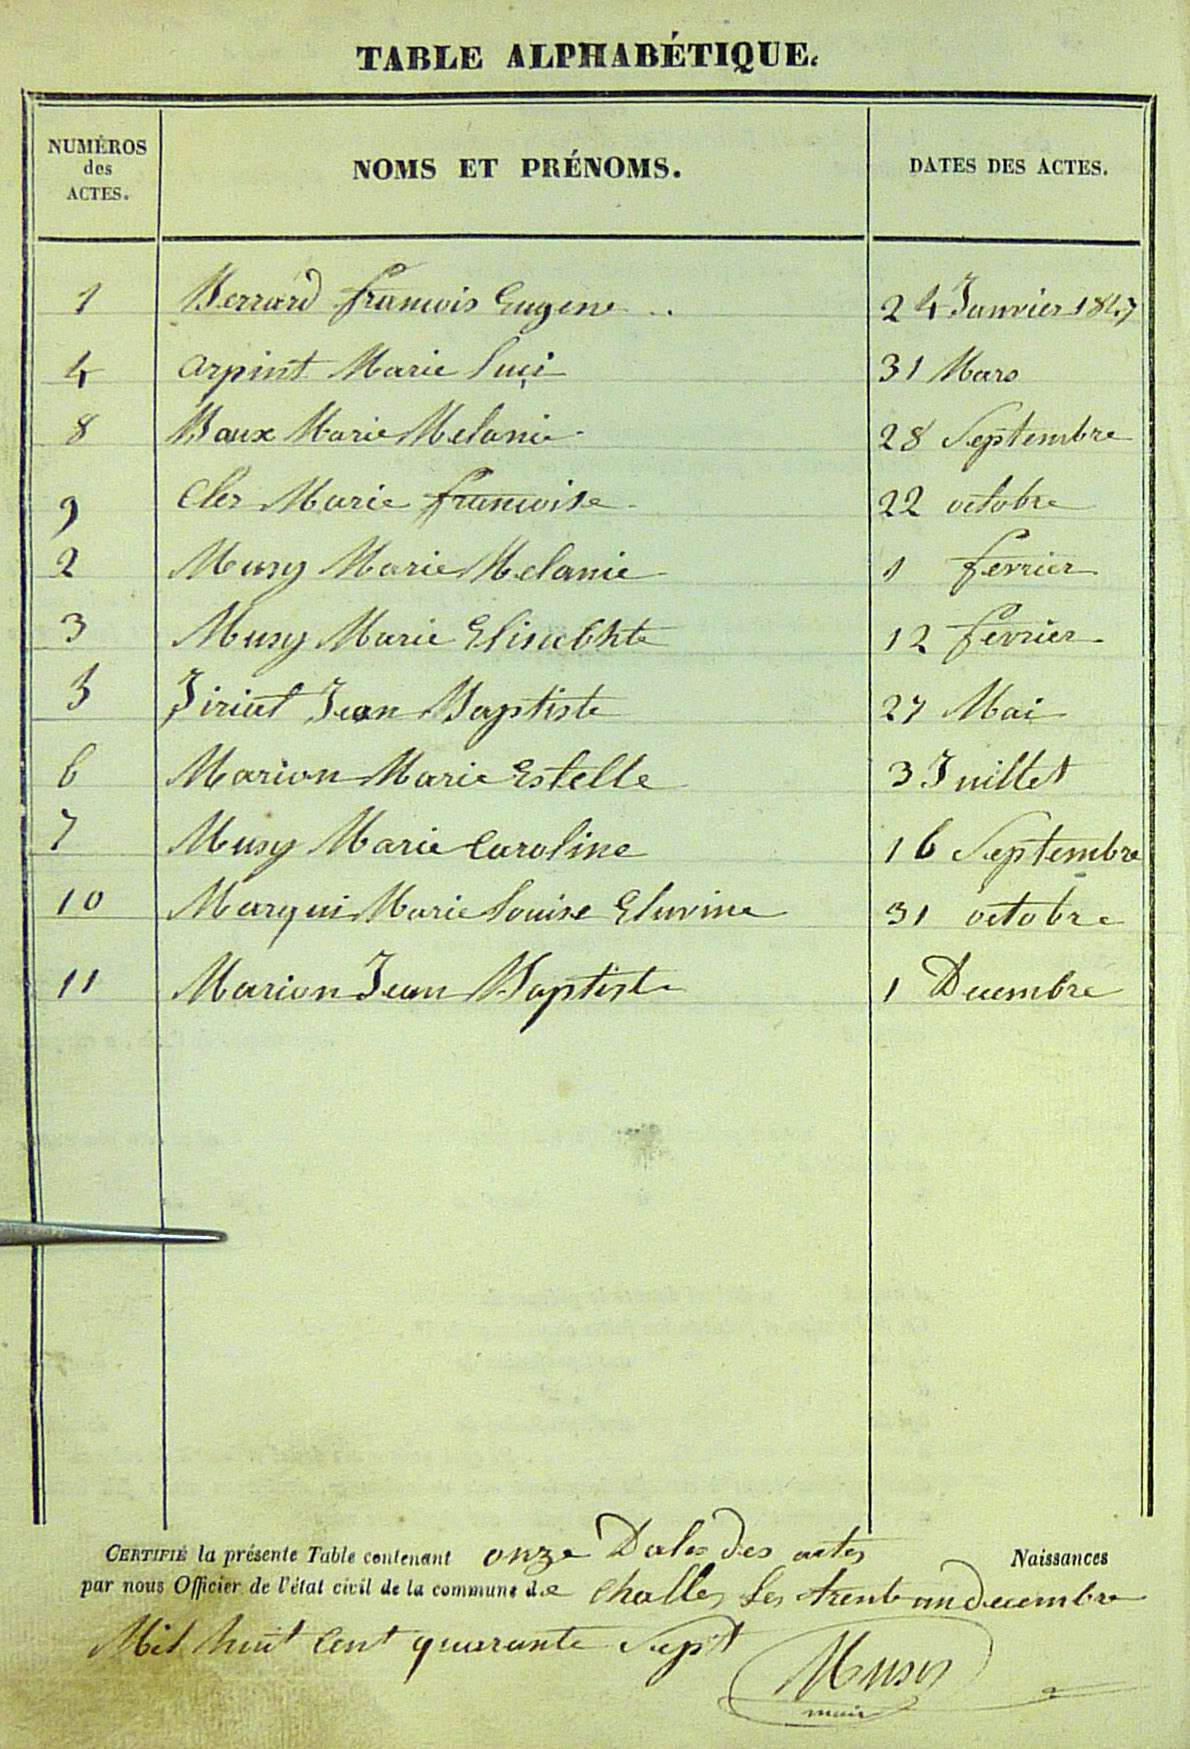 TABLE ALPHABÉTIQUE.
NUMÉROS des ACTES. NOMS ET PRÉNOMS. DATES DES ACTES.
1 Berrard francois Eugene 24 Janvier 1847
4 arpint Marie Luci 31 Mars
8 Baux Marie Melanie 28 Septembre
9 Cler Marie francoise 22 octobre
2 Musy Marie Melanie 1 fevrier
3 Musy Marie Elisabhte 12 fevrier
5 Jean Baptiste 27 Mai
6 Marion Marie Estelle 3 Juillet
7 Musy Marie Caroline 16 Septembre
10 Marqui Marie Louise 31 octobre
11 Marion Jean Baptiste 1 Decembre
CERTIFIÉ la présente Table contenant onze Dates des actes Naissances
par nous Officier de l'état civil de la commune de Challes Les trente un decembre
Mil huit Cent quarante Sept
Musy
maire